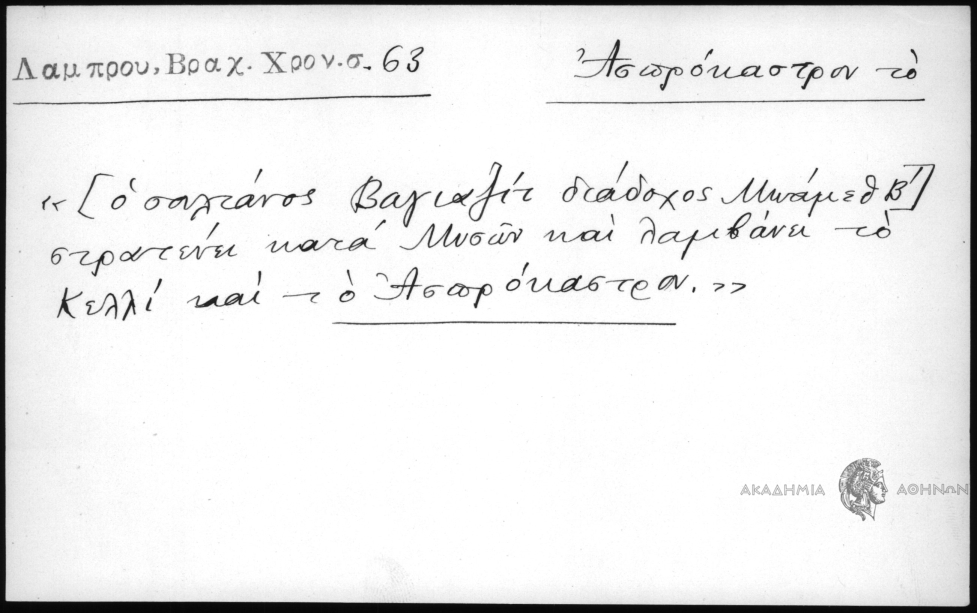 Λαμπρου, Βραχ. Χρον. σ. 63
Ἀσπρόκαστρον τὸ
«[ὁ σουλτάνος Βαγιαζὶτ διάδοχος Μωάμεθ Β΄]
στρατεύει κατά Μυσῶν καὶ λαμβάνει τὸ
Κελλί καὶ τὸ Ἀσπρόκαστρον.»
ΑΚΑΔΗΜΙΑ ΑΘΗΝΩΝ